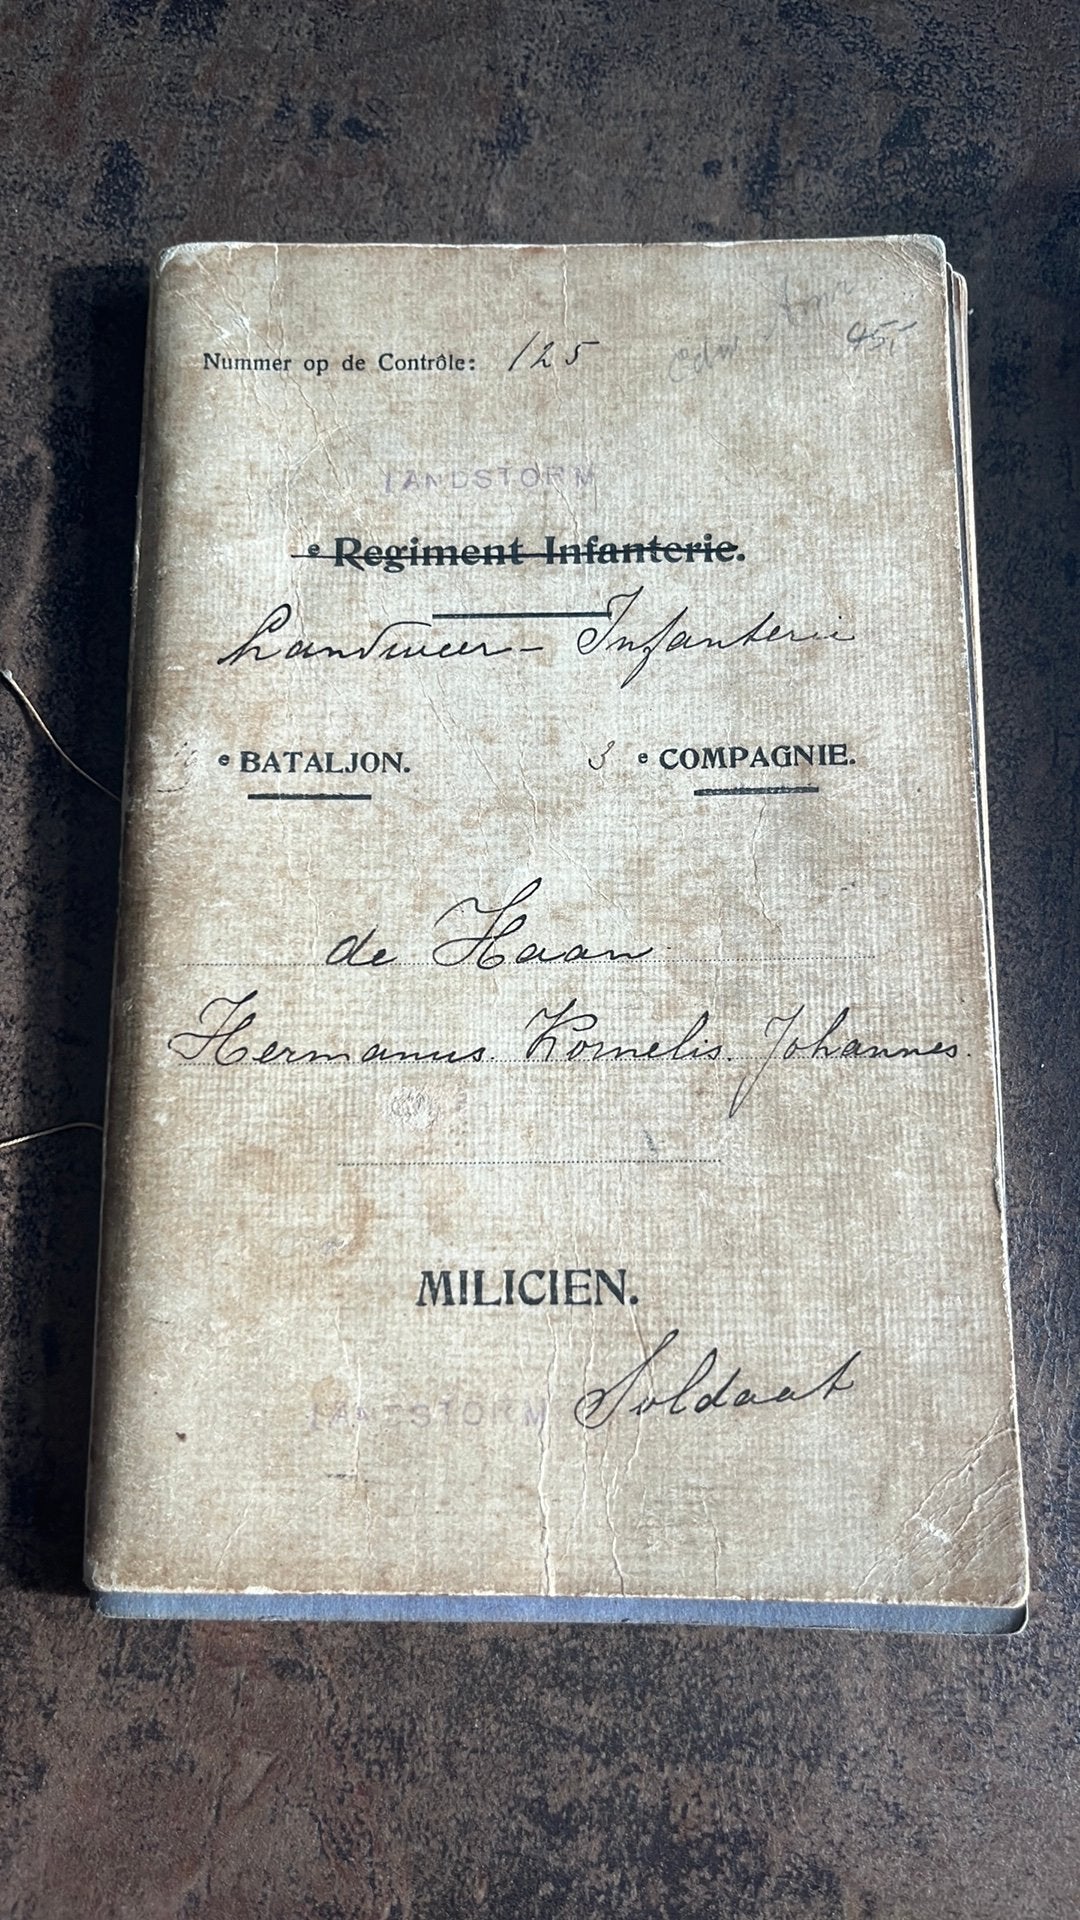 Nummer op de Contrôle: 125
45,-
LANDSTORM
e Regiment Infanterie.
Landweer - Infanterie
e BATALJON. 3 e COMPAGNIE.
de Haan
Hermanus. Kornelis. Johannes.
MILICIEN.
LANDSTORM Soldaat